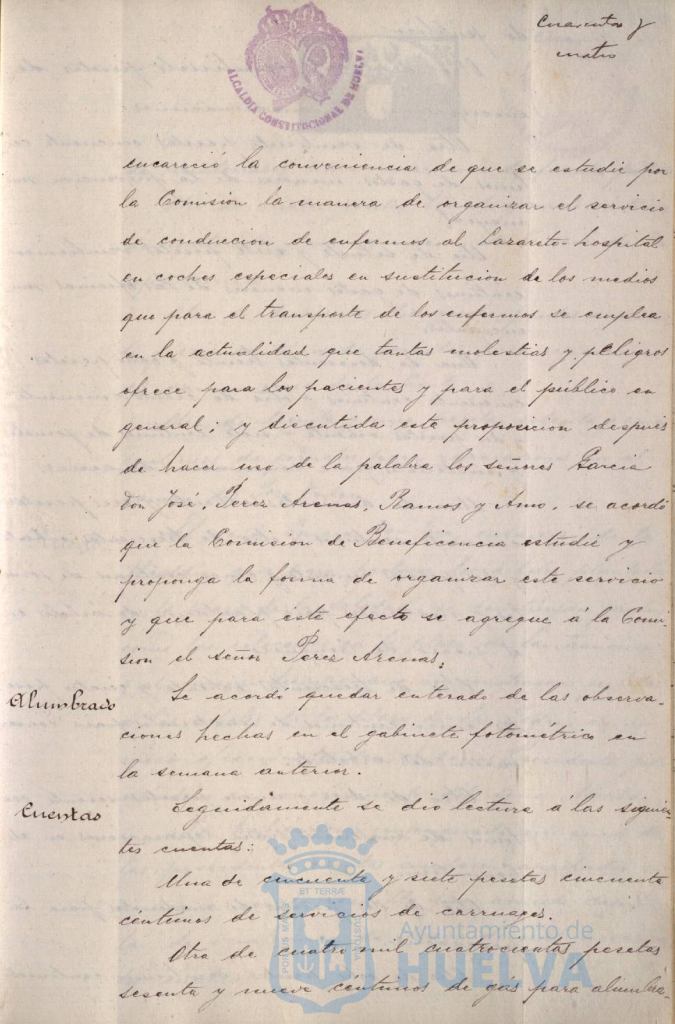 Cuarenta y
cuatro
ALCALDIA CONSTITUCIONAL DE HUELVA
encareció la conveniencia de que se estudie por
la Comision la manera de organizar el servicio
de conduccion de enfermos al Lazareto-hospital
en coches especiales en sustitucion de los medios
que para el transporte de los enfermos se emplea
en la actualidad que tantas molestias y peligros
ofrece para los pacientes y para el público en
general; y discutida esta proposicion despues
de hacer uso de la palabra los señores Garcia
Don José, Perez Arenas, Ramos y Amo, se acordó
que la Comision de Beneficencia estudie y
proponga la forma de organizar este servicio
y que para este efecto se agregue á la Comi-
sion el señor Perez Arenas.
Alumbrado
Se acordó quedar enterado de las observa-
ciones hechas en el gabinete fotométrico en
la semana anterior.
Cuentas
Seguidamente se dió lectura á las siguien-
tes cuentas:
Una de cincuenta y siete pesetas cincuenta
céntimos de servicios de carruages.
Otra de cuatro mil cuatrocientas pesetas
sesenta y nueve céntimos de gás para alumbra-
PORTUS MARIS ET TERRÆ CUSTODIA
Ayuntamiento de
HUELVA